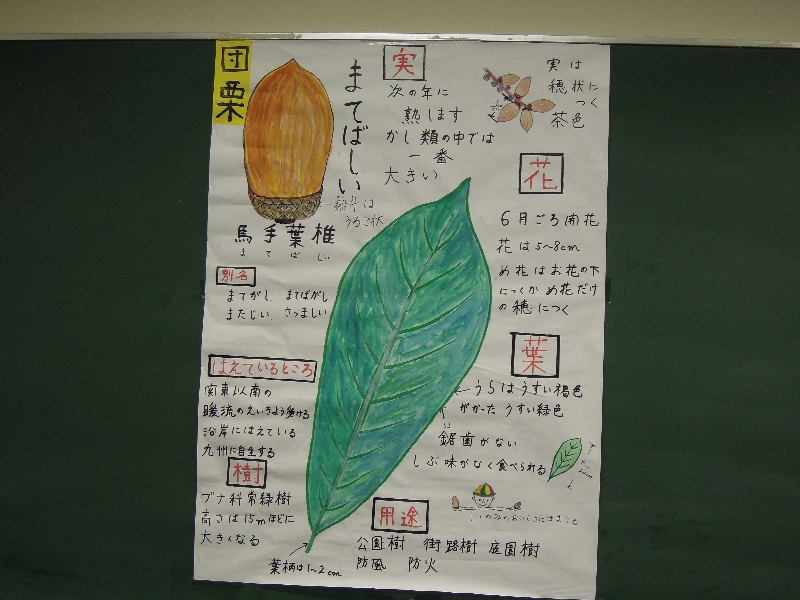 団栗
まてばしい
殻斗は
うろこ状
馬手葉椎
まてばしい
別名
まてがし まてばがし
またじい さつまじい
はえているところ
関東以南の
暖流のえいきょう受ける
沿岸にはえている
九州に自生する
樹
ブナ科常緑樹
高さは15mほどに
大きくなる
葉柄は1~2cm
実
次の年に
熟します
かし類の中では
一番
大きい
実は
穂状に
つく
茶色
花
6月ごろ開花
花は5~8cm
め花はお花の下
につくか め花だけ
の穂につく
葉
うらはうすい褐色
がかった うすい緑色
鋸歯がない
しぶ味がなく食べられる
用途
公園樹 街路樹 庭園樹
防風 防火